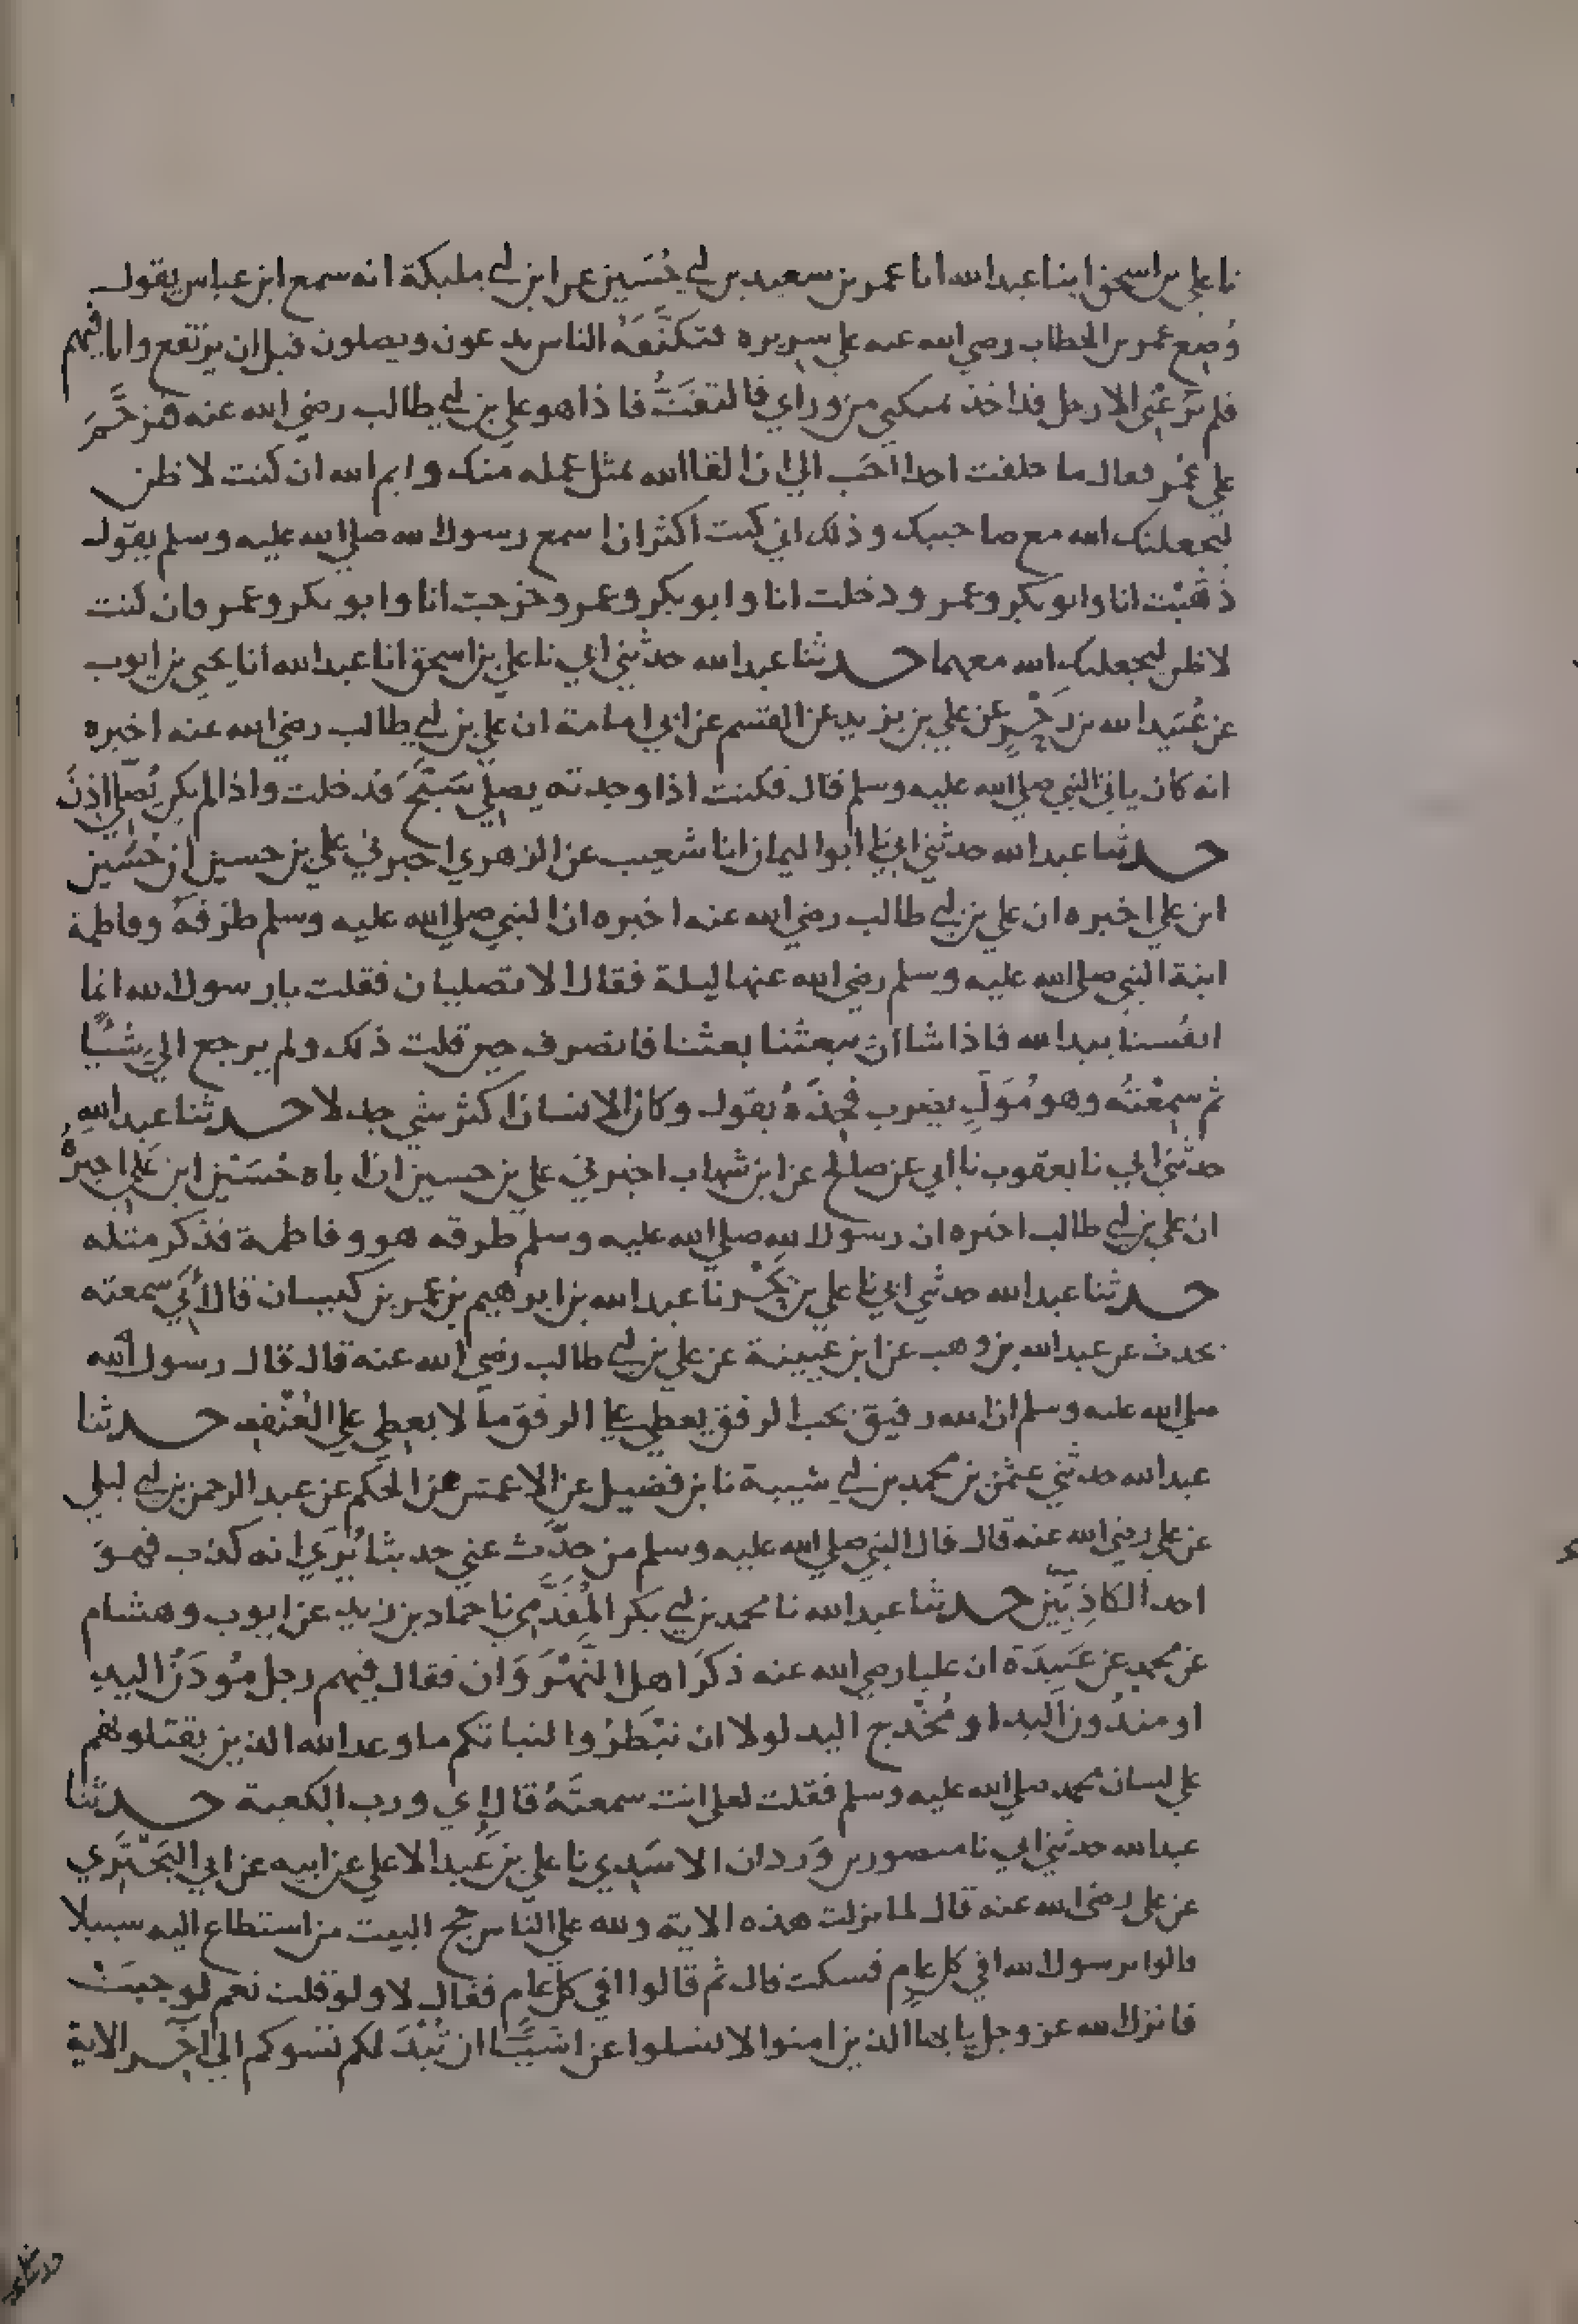 نا علي بن اسحق ابنا عبد الله انا عمر بن سعيد بن ابي حُسَين عن ابن ابي مليكة انه سمع ابن عباس يقول
وُضِع عمر بن الخطاب رضي الله عنه علي سريره فتكنَّفَهُ الناس يدعون ويصلون قبل ان يرتفع وانا فيهم
فلم يَرُعْنِي الا رجل قد اخذ بمنكبي من وراي فالتفتُّ فاذا هو علي بن ابي طالب رضي الله عنه فترحَّمَ
علي عُمَر فقال ما خلفت احدا احَب الي ان القا الله بمثل عمله منك وايم الله ان كنت لاظن
ليجعلنك الله مع صاحبيك وذلك اني كنت اكثر ان اسمع رسول الله صلي الله عليه وسلم يقول
ذهَبْت انا وابو بكر وعمر ودخلت انا وابو بكر وعمر وخرجت انا وابو بكر وعمر وان كنت
لاظن ليجعلنك الله معهما حدثنا عبد الله حدثني ابي نا علي بن اسحق انا عبد الله انا يحيي بن ايوب
عن عُبَيد الله بن زَحْرٍ عن علي بن يزيد عن القسم عن ابي امامة ان علي بن ابي طالب رضي الله عنه اخبره
انه كان ياتي النبي صلي الله عليه وسلم قال فكنت اذا وجدته يصلي سَبَّحَ فدخلت واذا لم يكن يُصلّي اذِنَ
حدثنا عبد الله حدثني ابي نا ابو اليمان انا شعيب عن الزهري اخبرني علي بن حسين ان حُسَين
ابن علي اخبره ان علي بن ابي طالب رضي الله عنه اخبره ان النبي صلي الله عليه وسلم طَرَقَهُ وفاطمة
ابنة النبي صلي الله عليه وسلم رضي الله عنها ليلة فقال الا تصليان فقلت يا رسول الله انما
انفُسنا بيد الله فاذا شا ان يبعثنا بعثنا فانصرف حين قلت ذلك ولم يرجع اليّ شيًا
ثم سمِعْتُه وهو مُوَلٍّ يضرب فَخِذَهُ يقول وكان الانسان اكثر شي جدلا حدثنا عبد الله
حدثني ابي نا يعقوب نا ابي عن صالح عن ابن شهاب اخبرني علي بن حسين ان اباه حُسَيْن ابن عَلي اخبرهُ
ان علي بن ابي طالب اخبره ان رسول الله صلي الله عليه وسلم طرقه هو وفاطمة فذكر مثله
حدثنا عبد الله حدثني ابي نا علي بن بَحْر نا عبد الله بن ابرهيم بن عمر بن كيسان قال أَبي سمعته
يحدث عن عبد الله بن وهب عن ابن عيينة عن علي بن ابي طالب رضي الله عنه قال قال رسول الله
صلي الله عليه وسلم ان الله رفيق يحب الرفق يعطي علي الرفق مَا لا يعطِي علي العُنْف حدثنا
عبد الله حدثني عثمن بن محمد بن ابي شيبة نا بن فضيل عن الاعمش عن الحكم عن عبد الرحمن بن ابي ليلي
عن علي رضي الله عنه قال قال النبي صلي الله عليه وسلم من حدَّث عني حديثا يُرَي انه كذب فهوَ
احد الكاذِبَيْن حدثنا عبد الله نا محمد بن ابي بكر المُقَدَّمِي نا حماد بن زيد عن ايوب وهشام
عن محمد عن عَبِيدَة ان عليا رضي الله عنه ذكَرَ اهل النَّهْرَوَان فقال فيهم رجل مُودَنُ اليد
او مثدُون اليد او مُخْدج اليد لولا ان تبْطَرُوا لنباتكم ما وعد الله الذين يقتلونهم
علي لسان محمد صلي الله عليه وسلم فقلت لعلي انت سمعتَهُ قال إي ورب الكعبة حدثنا
عبد الله حدثني ابي نا منصور بن وَردان الاسَدِي نا علي بن عَبد الاعلي عن ابيه عن ابي البَخْتَرِي
عن علي رضي الله عنه قال لما نزلت هذه الاية ولله علي الناس حج البيت من استطاع اليه سبيلا
قالوا يرسول الله افي كل عامٍ فسكت قال ثم قالوا افي كل عام فقال لا ولو قلت نعم لوجبَتْ
فانزل الله عز وجل يا يها الذين امنوا لا تسلوا عن اشيَّا ان تُبْدَ لكم تسوكم الي آخر الاية